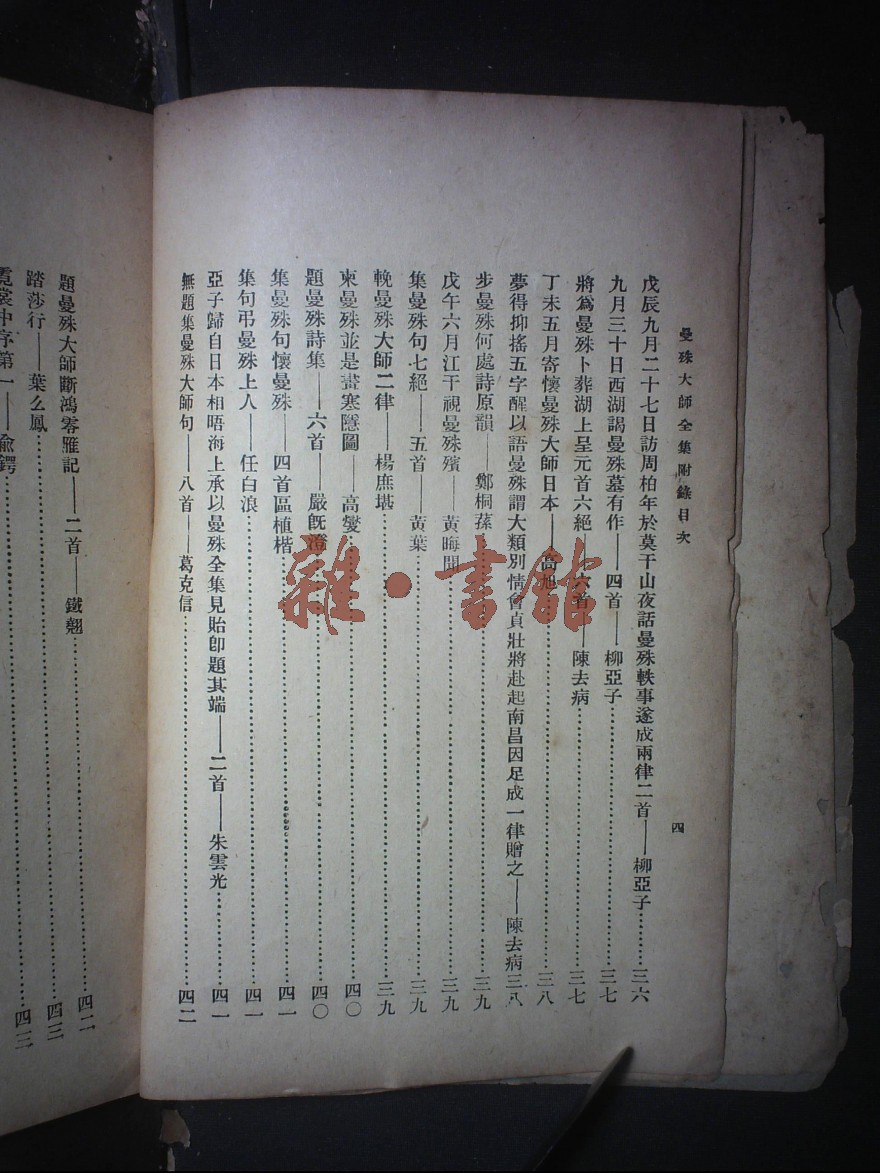 曼殊大師全集附錄目次
四
戊辰九月二十七日訪周柏年於莫干山夜話曼殊軼事遂成兩律二首——柳亞子…………三六
九月三十日西湖謁曼殊墓有作——四首——柳亞子…………三七
將爲曼殊卜葬湖上呈元首六絕——六首——陳去病…………三七
丁未五月寄懷曼殊大師日本——高旭…………三八
夢得抑搖五字醒以語曼殊謂大類別情會貞壯將赴起南昌因足成一律贈之——陳去病三八
步曼殊何處詩原韻——鄭桐蓀…………三九
戊午六月江干視曼殊殯——黃晦聞…………三九
集曼殊句七絕——五首 黃葉…………三九
輓曼殊大師二律——楊庶堪…………三九
柬曼殊並是畫寒隱圖——高燮…………四〇
題曼殊詩集——六首——嚴旣澄…………四〇
集曼殊句懷曼殊——四首區植楷…………四一
集句弔曼殊上人——任白浪…………四一
亞子歸自日本相晤海上承以曼殊全集見貽卽題其端——二首——朱雲光…………四一
無題集曼殊大師句——八首——葛克信…………四二
題曼殊大師斷鴻零雁記——二首——鐵翹…………四二
踏莎行——葉么鳳…………四三
霓裳中序第一——兪鍔…………四三
雜·書館